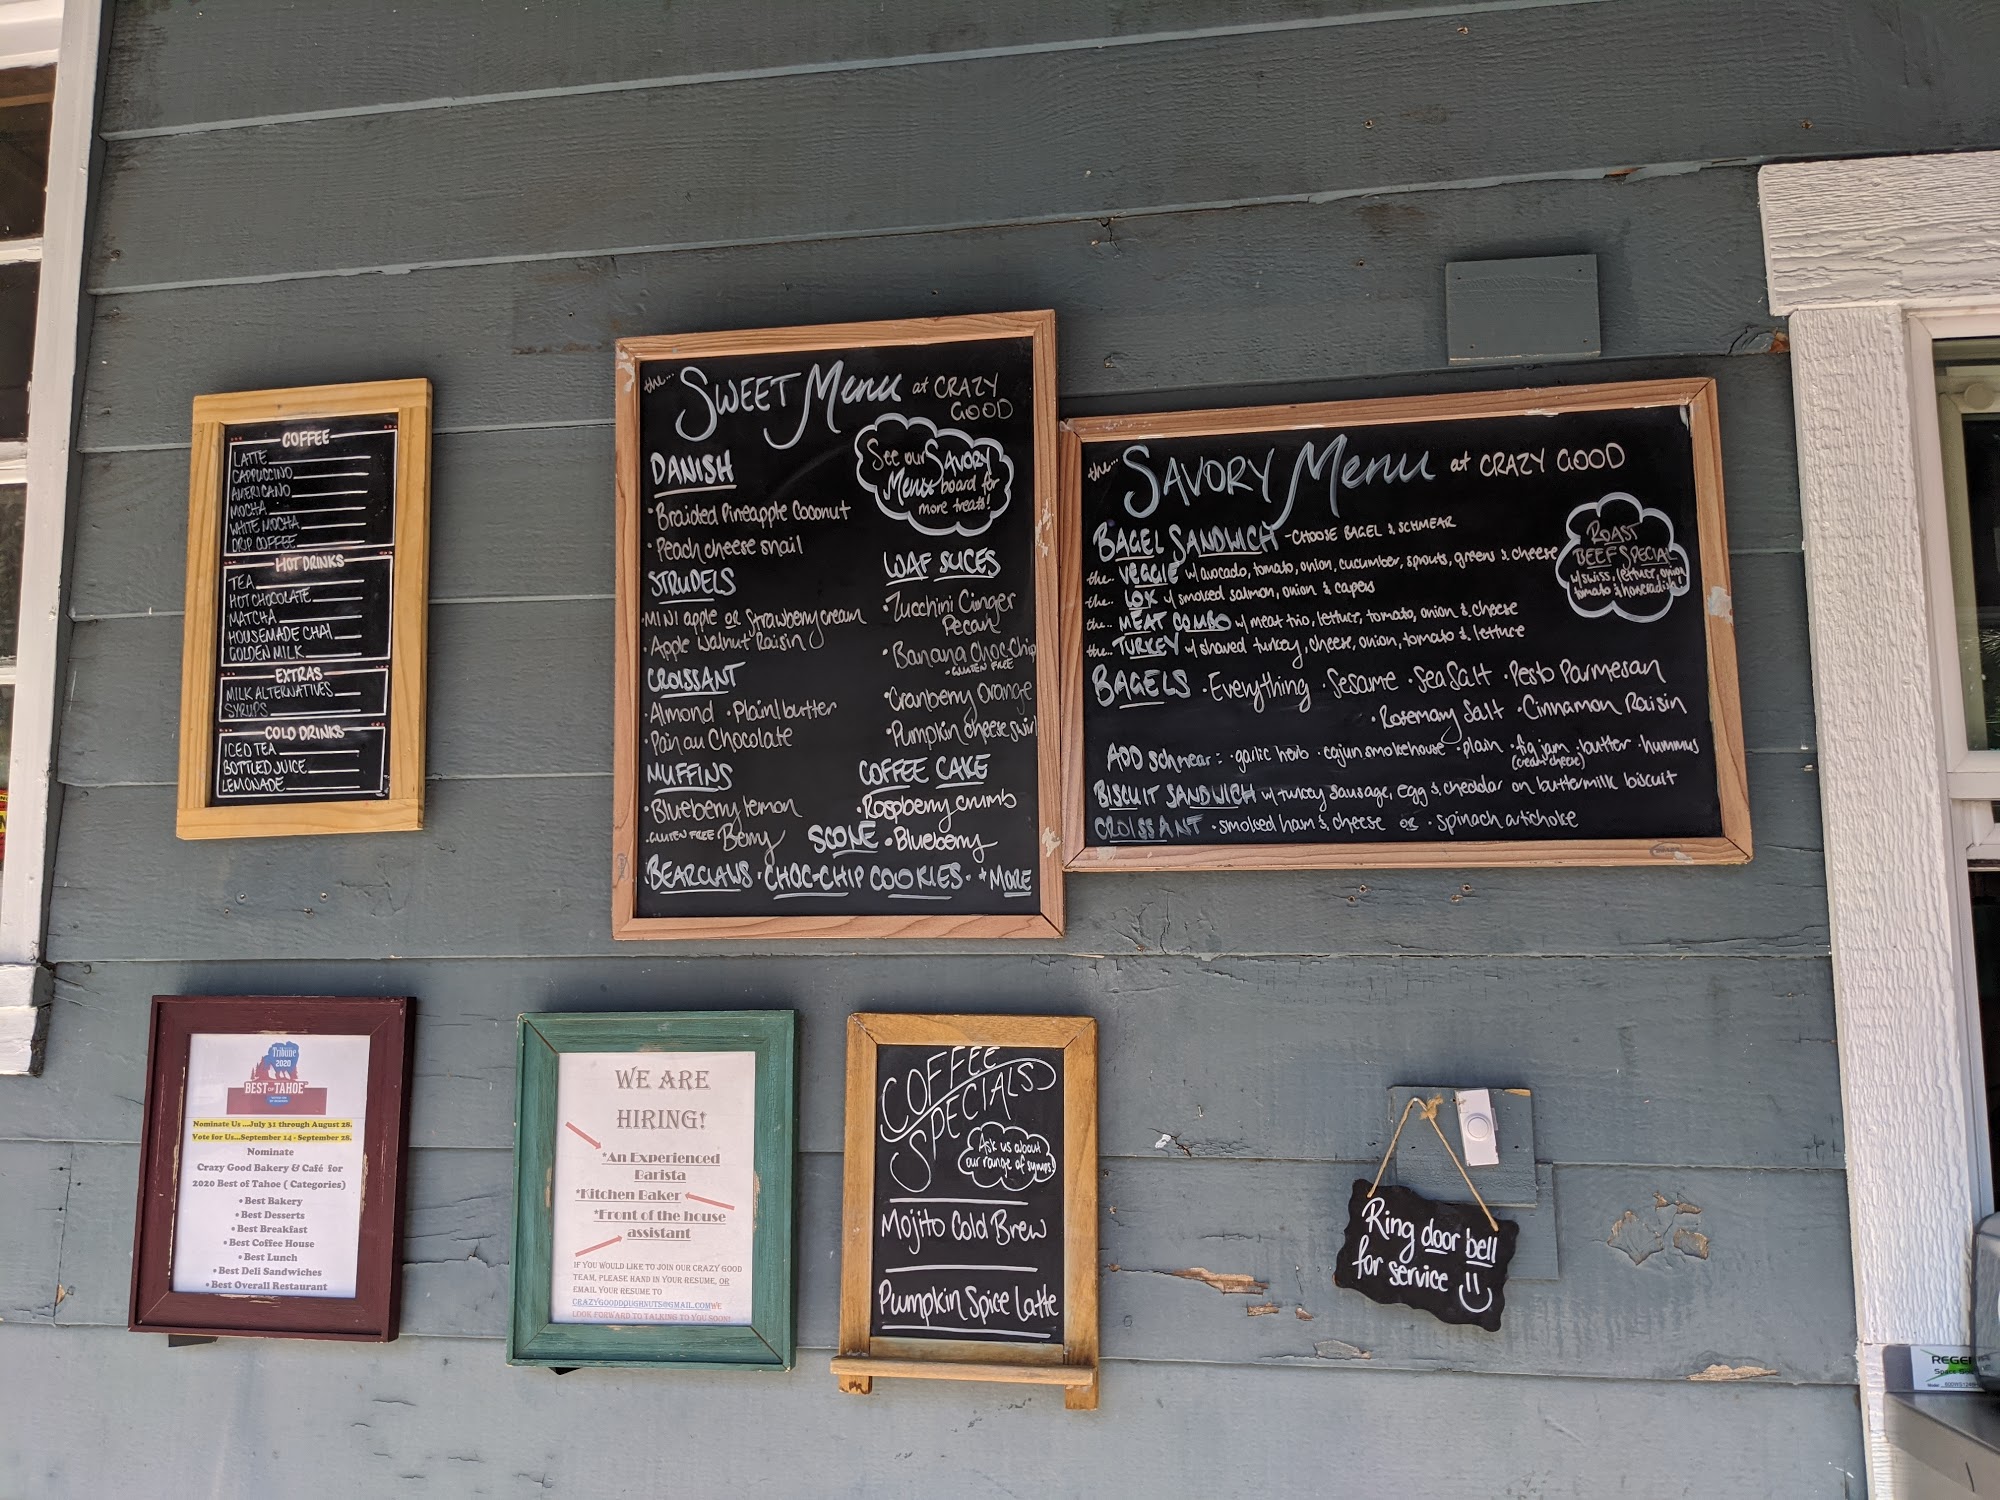 COFFEE
LATTE
CAPPUCCINO
AMERICANO
MOCHA
WHITE MOCHA
DRIP COFFEE
HOT DRINKS
TEA
HOT CHOCOLATE
MATCHA
HOUSEMADE CHAI
GOLDEN MILK
EXTRAS
MILK ALTERNATIVES
SYRUPS
COLD DRINKS
ICED TEA
BOTTLED JUICE
LEMONADE
the... SWEET Menu at CRAZY
GOOD
See our SAVORY
Menu board for
more treats!
DANISH
• Braided Pineapple Coconut
• Peach cheese snail
STRUDELS
• MINI apple or Strawberry cream
• Apple Walnut Raisin
CROISSANT
• Almond • Plain/butter
• Pain au Chocolate
MUFFINS
• Blueberry lemon
• GLUTEN FREE • Berry
LOAF SLICES
• Zucchini Ginger
Pecan
• Banana Choc-Chip
• GLUTEN FREE
• Cranberry Orange
• Pumpkin cheese swirl
COFFEE CAKE
• Raspberry crumb
SCONE • Blueberry
BEARCLAWS • CHOC-CHIP COOKIES • + MORE
the... SAVORY Menu at CRAZY GOOD
ROAST
BEEF SPECIAL
w/ swiss, lettuce, onion
tomato & horseradish!
BAGEL SANDWICH - CHOOSE BAGEL & SCHMEAR
the.. VEGGIE w/ avocado, tomato, onion, cucumber, sprouts, greens & cheese
the.. LOX w/ smoked salmon, onion & capers
the.. MEAT COMBO w/ meat trio, lettuce, tomato, onion & cheese
the.. TURKEY w/ shaved turkey, cheese, onion, tomato & lettuce
BAGELS • Everything • Sesame • Sea Salt • Pesto Parmesan
• Rosemary Salt • Cinnamon Raisin
ADD schmear: • garlic herb • cajun smokehouse • plain • fig jam • butter • hummus
(cream cheese)
BISCUIT SANDWICH w/ turkey sausage, egg & cheddar on buttermilk biscuit
CROISSANT • smoked ham & cheese or • spinach artichoke
Tribune
2020
BEST OF TAHOE
Nominate Us ...July 31 through August 28.
Vote for Us...September 14 - September 28.
Nominate
Crazy Good Bakery & Café for
2020 Best of Tahoe ( Categories)
• Best Bakery
• Best Desserts
• Best Breakfast
• Best Coffee House
• Best Lunch
• Best Deli Sandwiches
• Best Overall Restaurant
WE ARE
HIRING!
*An Experienced
Barista
*Kitchen Baker
*Front of the house
assistant
IF YOU WOULD LIKE TO JOIN OUR CRAZY GOOD
TEAM, PLEASE HAND IN YOUR RESUME, OR
EMAIL YOUR RESUME TO
CRAZYGOODDOUGHNUTS@GMAIL.COM WE
LOOK FORWARD TO TALKING TO YOU SOON!
COFFEE
SPECIALS
Ask us about
our range of syrups!
Mojito Cold Brew
Pumpkin Spice Latte
Ring door bell
for service
REGE